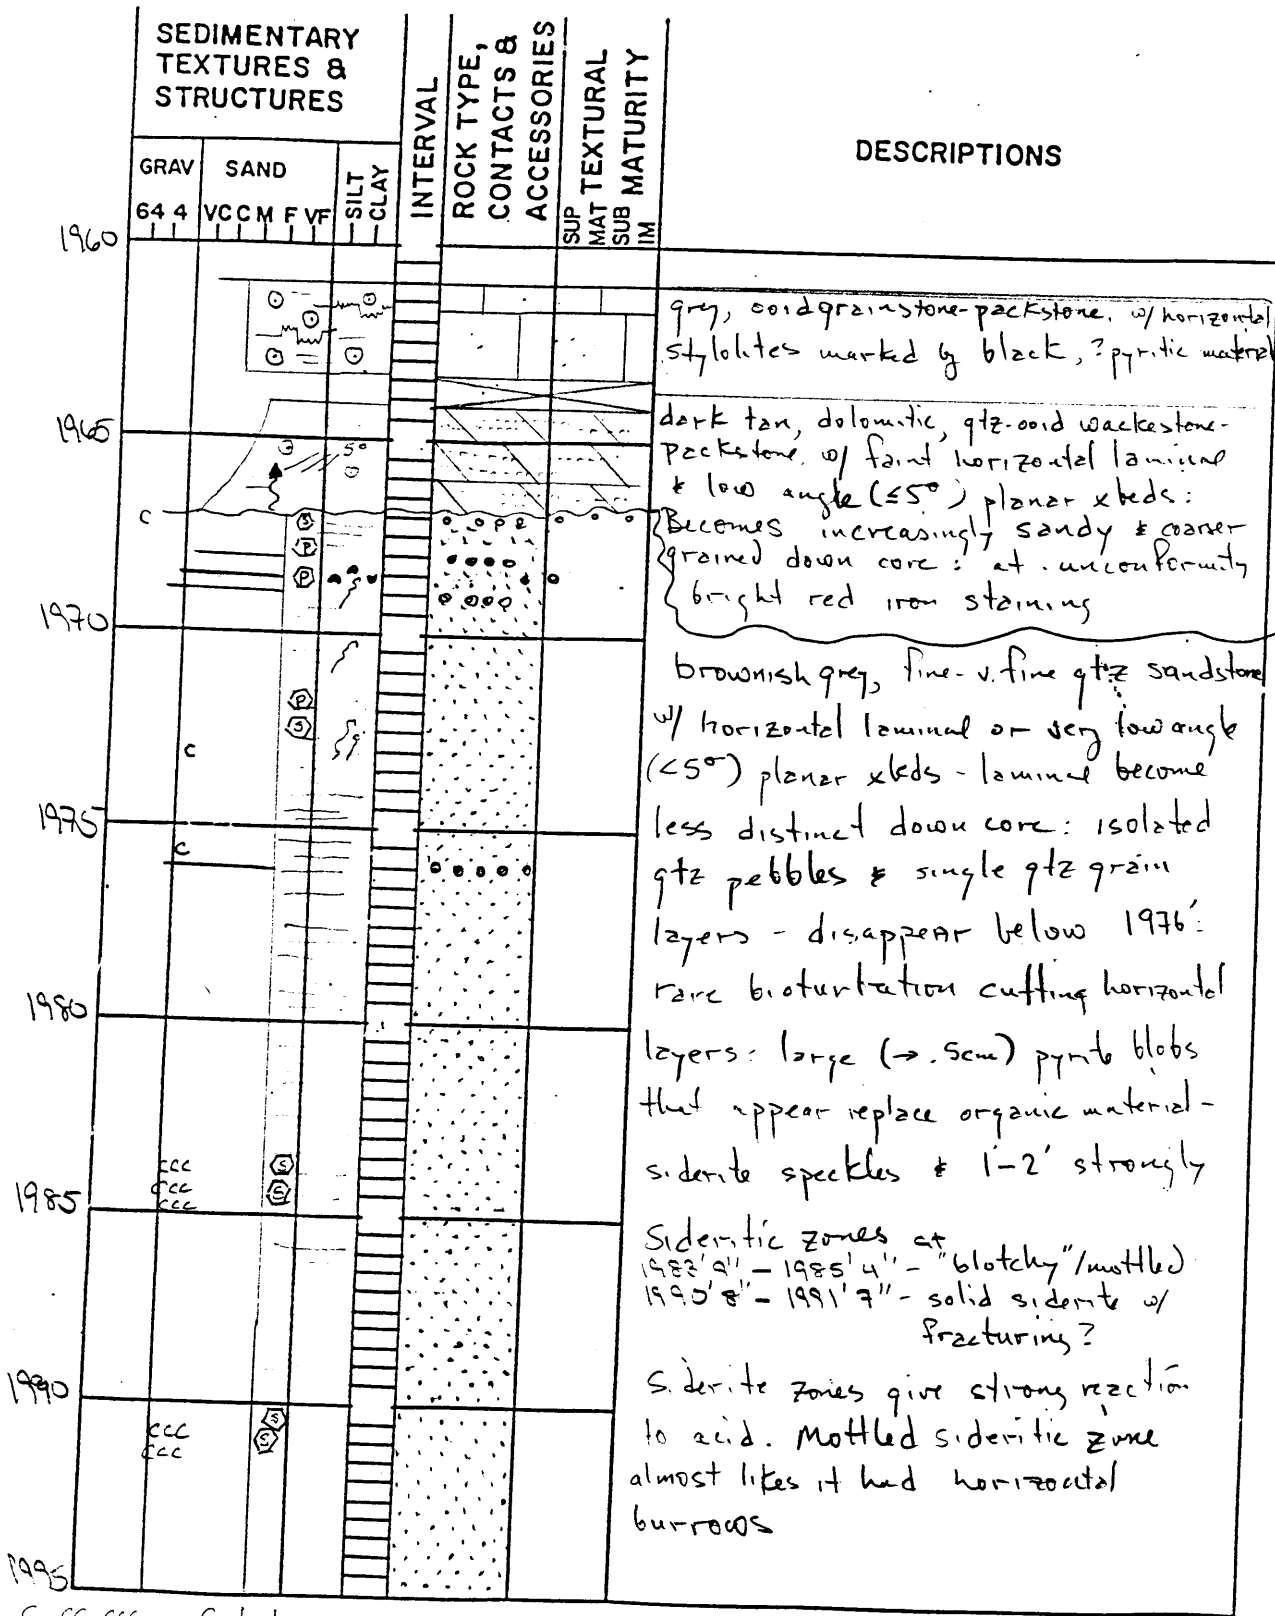 SEDIMENTARY
TEXTURES &
STRUCTURES
GRAV SAND
SILT
CLAY
64 4 VC C M F VF
INTERVAL
ROCK TYPE,
CONTACTS &
ACCESSORIES
TEXTURAL
MATURITY
SUP
MAT
SUB
IM
DESCRIPTIONS
1960
grey, ooid grainstone-packstone. w/ horizontal
stylolites marked by black, ? pyritic material
1965
5°
dark tan, dolomitic, qtz-ooid wackestone-
packstone. w/ faint horizontal laminae
& low angle (≤5°) planar xbeds:
Becomes increasingly sandy & coarser
grained down core: at unconformity
bright red iron staining
C
S
P
P
1970
brownish grey, fine-v.fine qtz sandstone
w/ horizontal laminae or very low angle
(<5°) planar xbds - laminae become
less distinct down core: isolated
qtz pebbles & single qtz grain
layers - disappear below 1976':
rare bioturbation cutting horizontal
layers: large (→ .5cm) pyrite blobs
that appear replace organic material -
siderite speckles & 1'-2' strongly
Sideritic zones at
1983'9" - 1985'4" - "blotchy"/mottled
1990'8" - 1991'7" - solid siderite w/
fracturing?
Siderite zones give strong reaction
to acid. Mottled sideritic zone
almost likes it had horizontal
burrows
P
S
C
1975
C
1980
CCC S
CCC S
CCC
1985
1990
CCC S
CCC S
1995